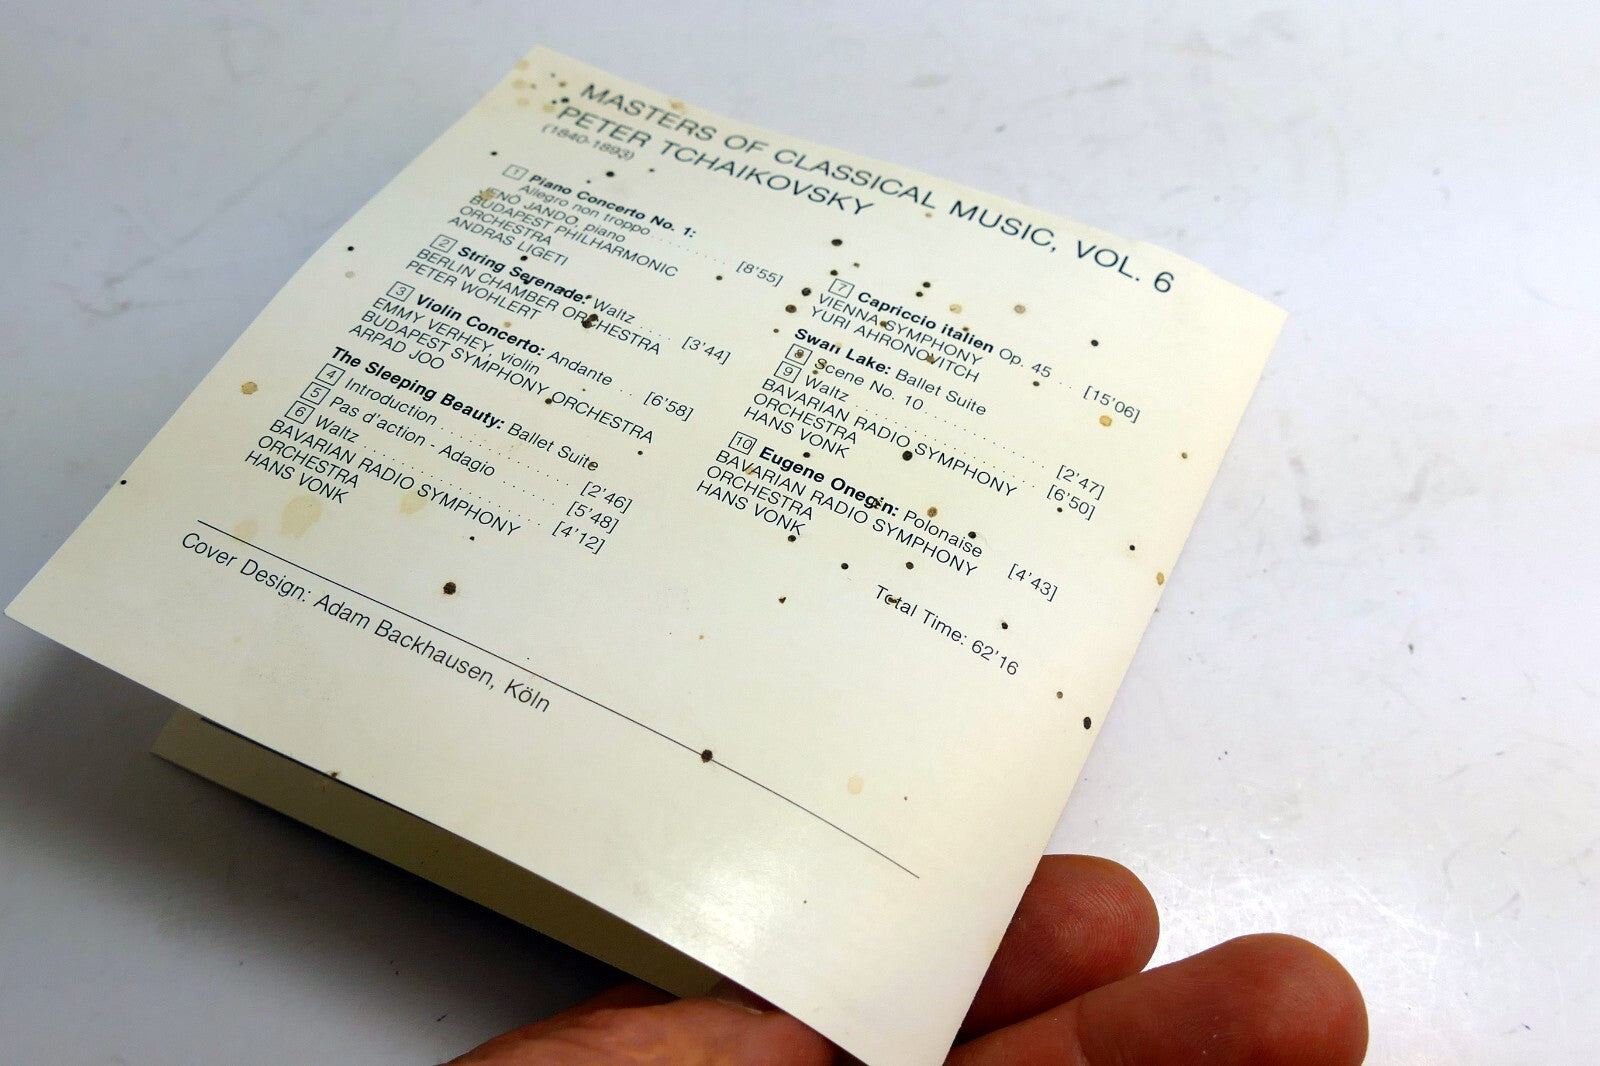 MASTERS OF CLASSICAL MUSIC, VOL. 6
PETER TCHAIKOVSKY
(1840-1893)
1 Piano Concerto No. 1:
Allegro non troppo .......... [8'55]
JENÖ JANDO, piano
BUDAPEST PHILHARMONIC
ORCHESTRA
ANDRAS LIGETI
2 String Serenade: Waltz ..... [3'44]
BERLIN CHAMBER ORCHESTRA
PETER WOHLERT
3 Violin Concerto: Andante .. [6'58]
EMMY VERHEY, violin
BUDAPEST SYMPHONY ORCHESTRA
ARPAD JOO
The Sleeping Beauty: Ballet Suite
4 Introduction .......... [2'46]
5 Pas d'action - Adagio ....... [5'48]
6 Waltz .......... [4'12]
BAVARIAN RADIO SYMPHONY
ORCHESTRA
HANS VONK
7 Capriccio italien Op. 45 .. [15'06]
VIENNA SYMPHONY
YURI AHRONOVITCH
Swan Lake: Ballet Suite
8 Scene No. 10 .......... [2'47]
9 Waltz .......... [6'50]
BAVARIAN RADIO SYMPHONY
ORCHESTRA
HANS VONK
10 Eugene Onegin: Polonaise [4'43]
BAVARIAN RADIO SYMPHONY
ORCHESTRA
HANS VONK
Total Time: 62'16
Cover Design: Adam Backhausen, Köln